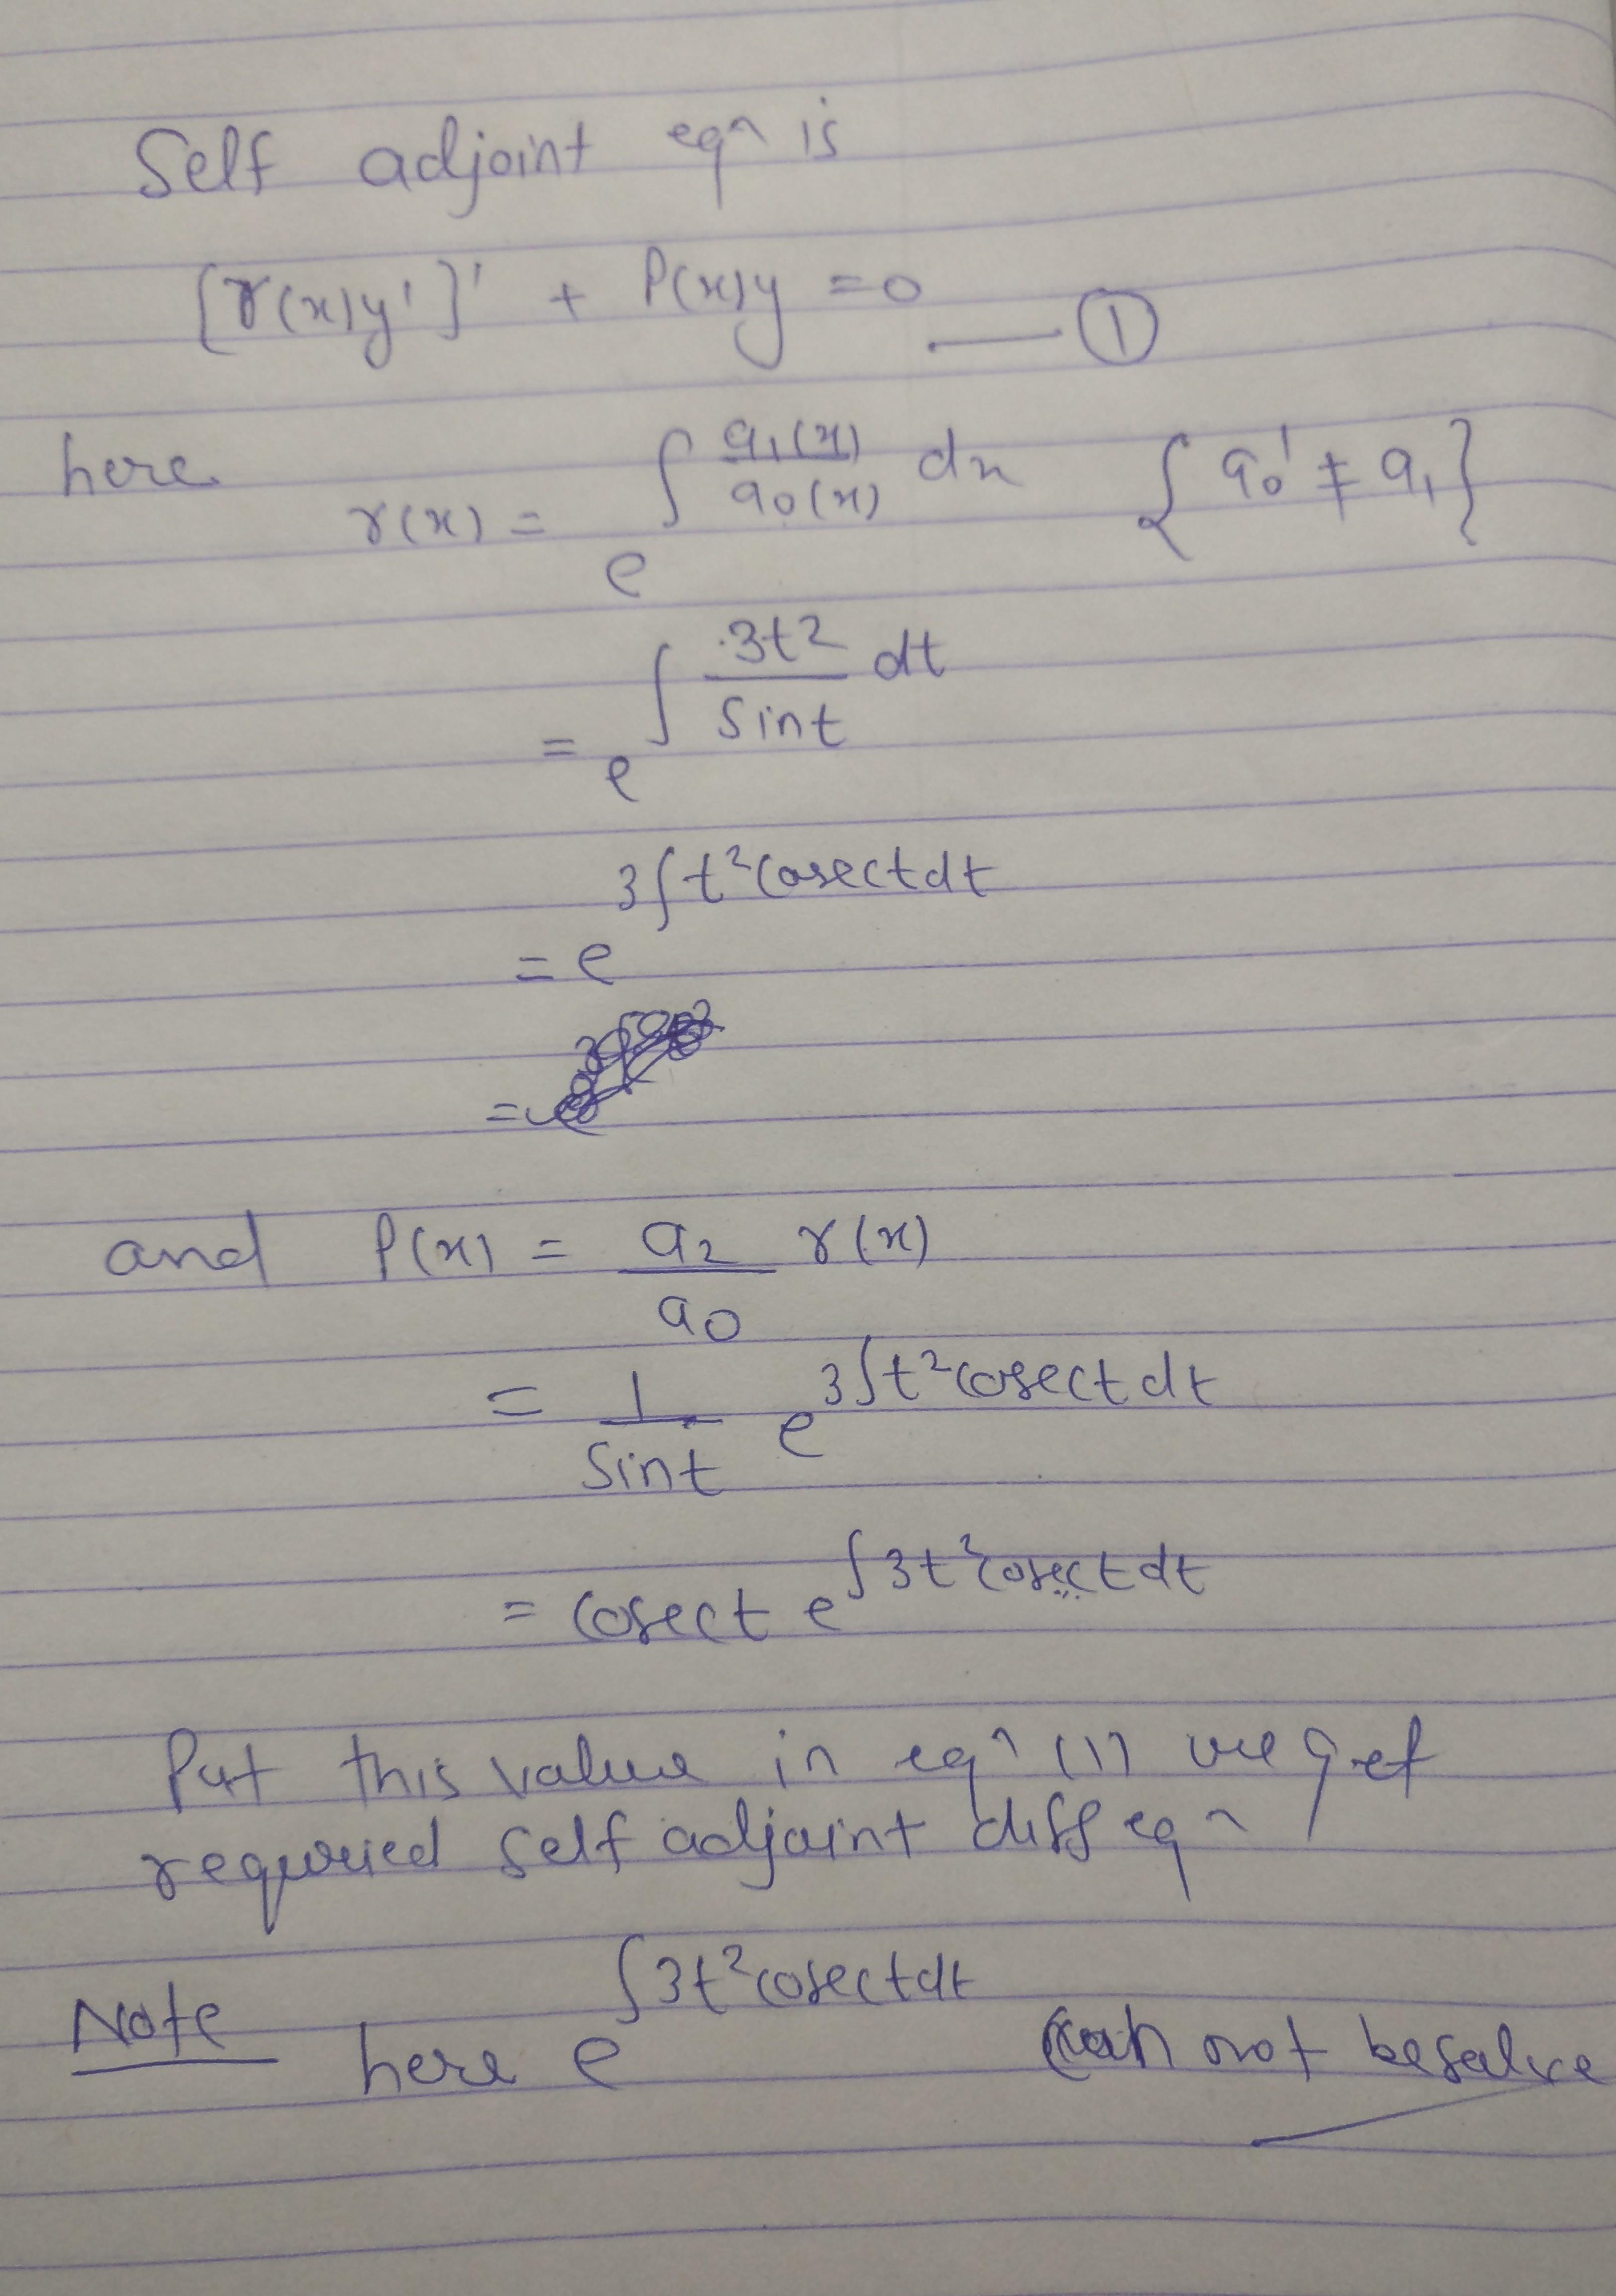 Self adjoint eqn is
[r(x)y']' + P(x)y = 0 — ①
here r(x) = e^∫ a₁(x)/a₀(x) dx { a₀' ≠ a₁ }
= e^∫ 3t²/Sint dt
= e^3∫t²cosect dt
=
and P(x) = a₂/a₀ r(x)
= 1/Sint e^3∫t²cosect dt
= cosect e^∫3t²cosect dt
Put this value in eqn (1) we get
required self adjoint diff eqn
Note here e^∫3t²cosect dt can not be solve